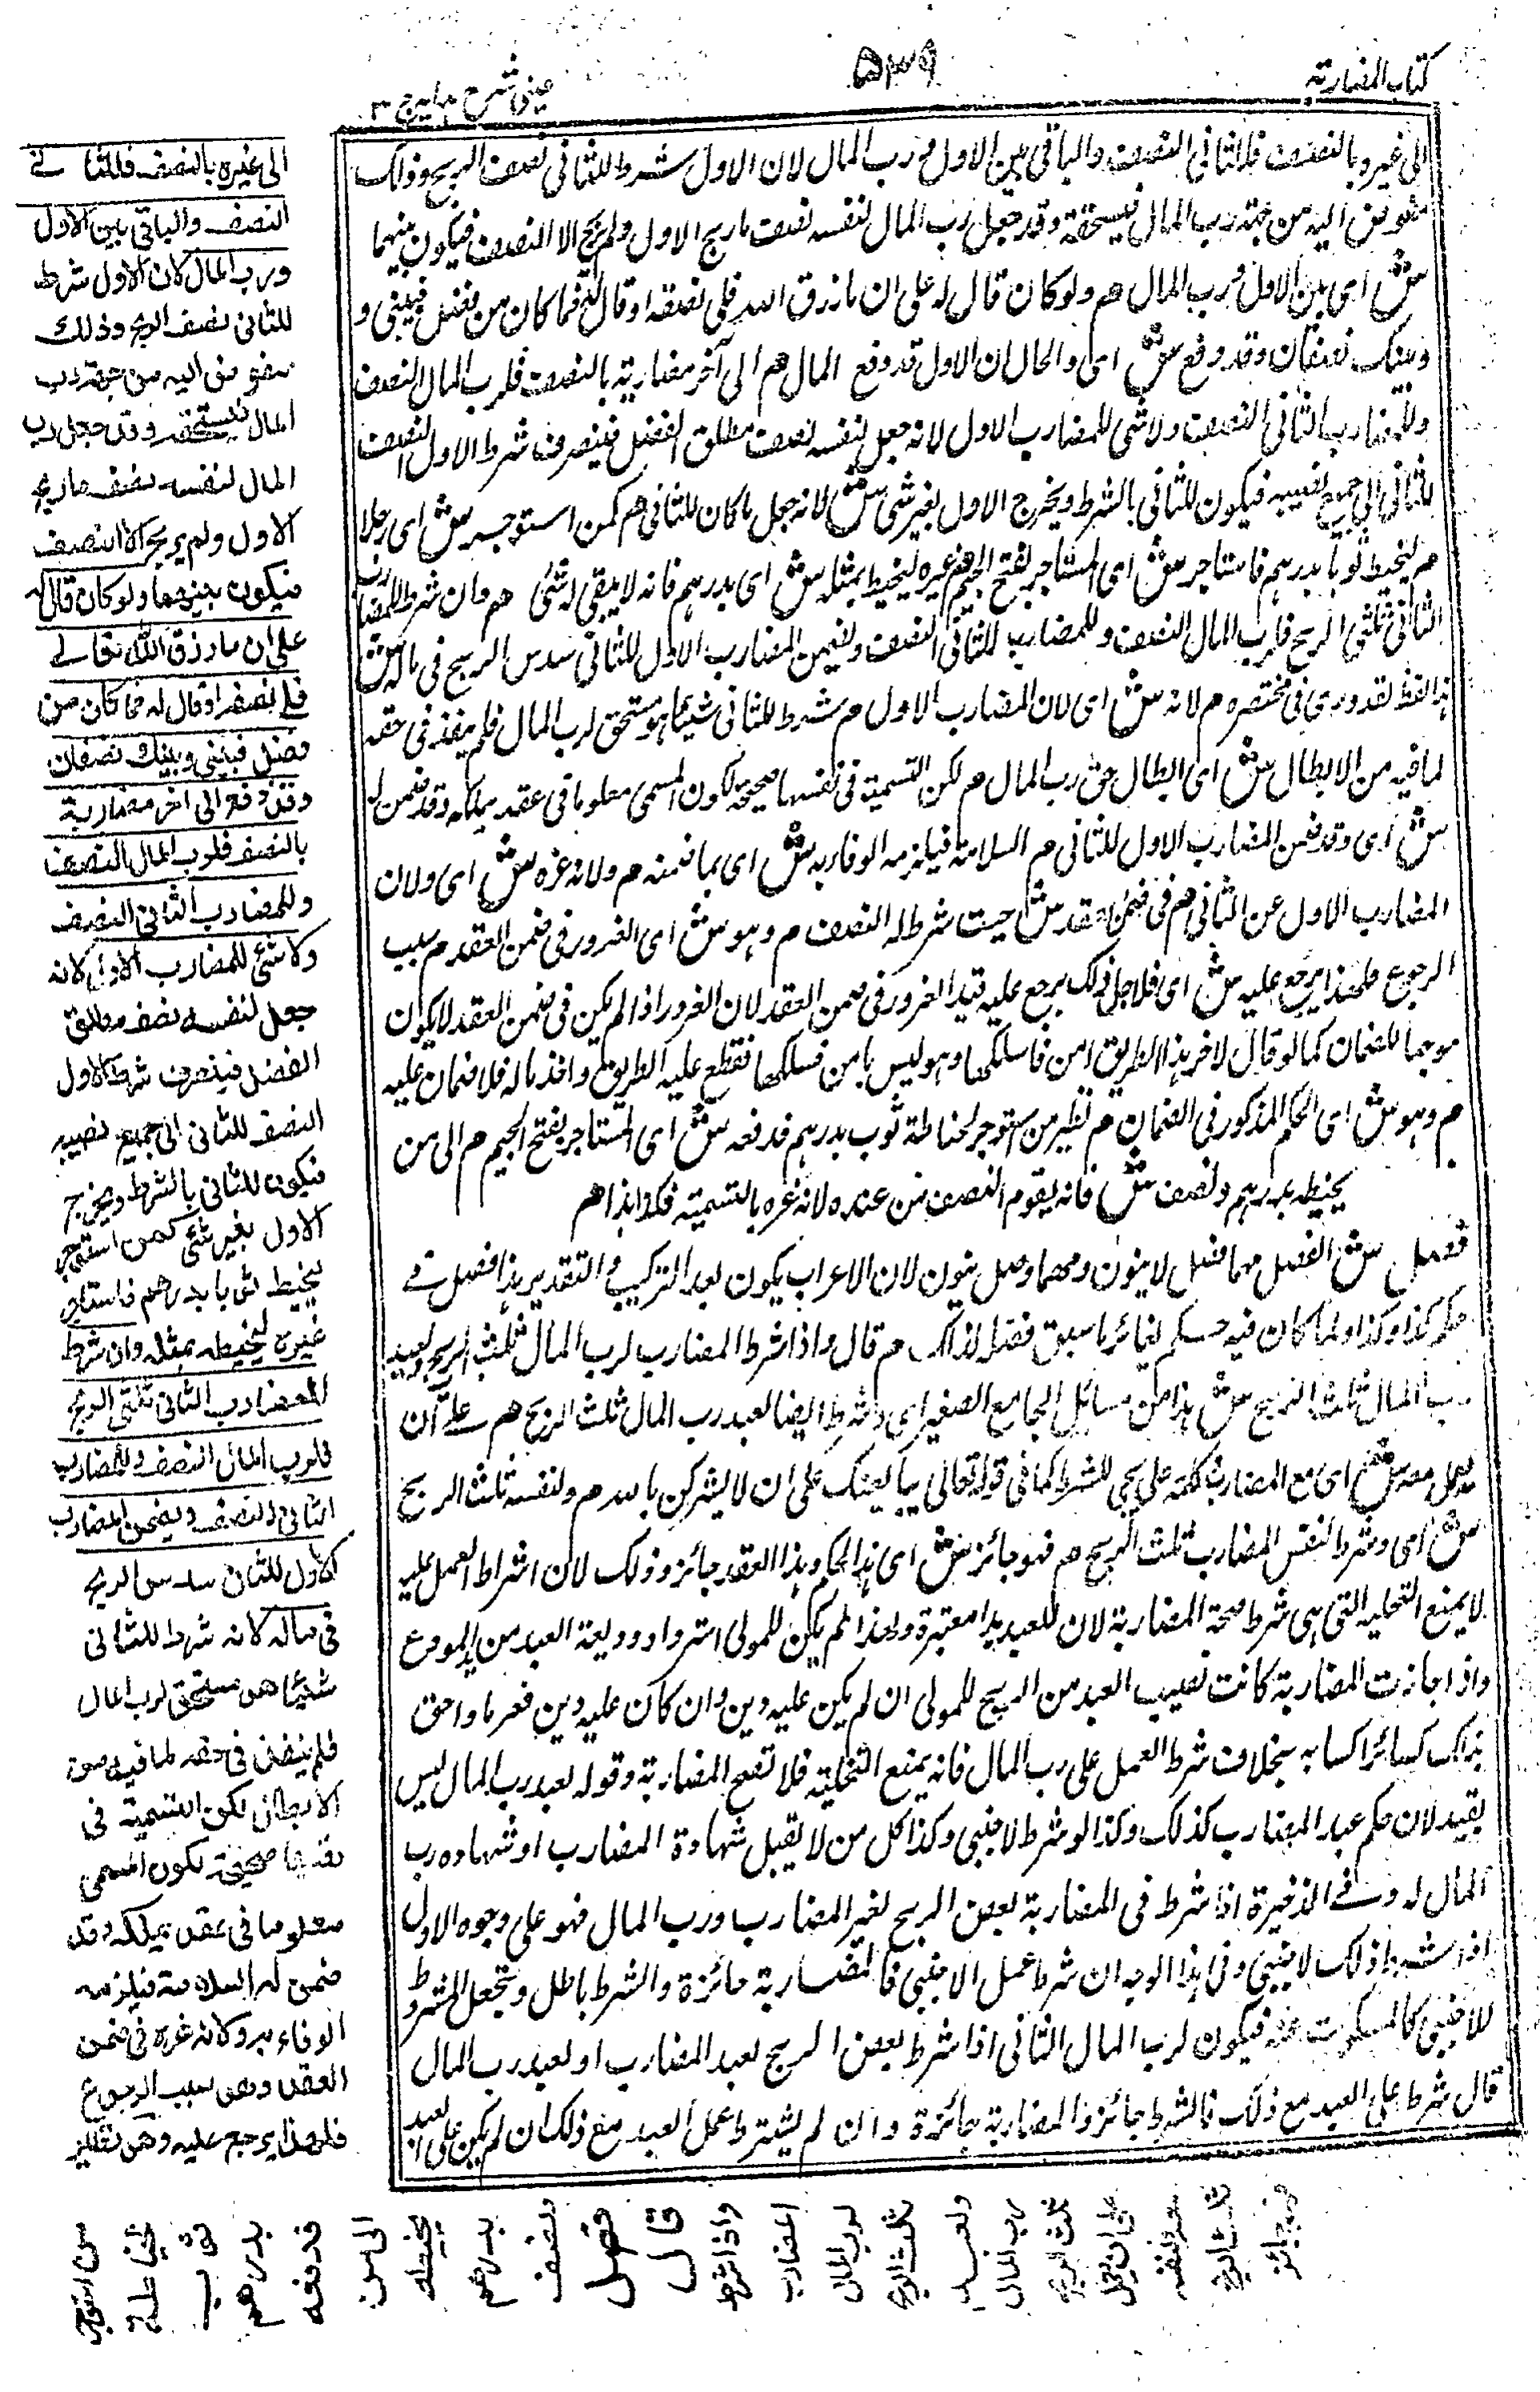 كتاب المضاربة
٥٣٩
عينى شرح هدايه ج ٣
الى غيره بالنصف فللثانى النصف والباقى بين الاول ورب المال لان الاول شرط للثانى نصف الربح وذلك
مفوض اليه من جهة رب المال فيستحقه وقد جعل رب المال لنفسه نصف ما ربح الاول ولم يربح الا النصف فيكون بينهما
ش اى بين الاول ورب المال هم ولو كان قال له على ان ما رزق الله فلى نصفه او قال له فما كان من فضل فبينى و
وبينك نصفان وقد دفع ش اى والحال ان الاول قد دفع المال هم الى آخر مضاربة بالنصف فلرب المال النصف
وللمضارب الثانى النصف ولا شئ للمضارب الاول لانه جعل لنفسه نصف مطلق الفضل فينصرف شرط الاول النصف
للثانى الى جميع نصيبه فيكون للثانى بالشرط ويخرج الاول بغير شئ ش لانه جعل ما كان للثانى هم كمن استوجر ش اى رجلا
هم ليخيط ثوبا بدرهم فاستاجر ش اى المستاجر بفتح الجيم هم غيره ليخيط بمثله ش اى بدرهم فانه لا يبقى له شئ هم وان شرط للمضارب
الثانى ثلثى الربح فلرب المال النصف وللمضارب الثانى النصف ويضمن المضارب الاول للثانى سدس الربح فى ماله ش
هذا لفظ القدورى فى مختصره هم لانه ش اى لان المضارب الاول هم شرط للثانى شيئا هو مستحق لرب المال فلم ينفذ فى حقه
لما فيه من الابطال ش اى ابطال حق رب المال هم لكن التسمية فى نفسها صحيحة لكون المسمى معلوما فى عقد يملكه وقد ضمن له
ش اى وقد ضمن المضارب الاول للثانى هم السلامة فيلزمه الوفاء به ش اى بما ضمنه هم ولانه غره ش اى ولان
المضارب الاول عن الثانى هم فى ضمن العقد ش حيث شرط له النصف هم وهو ش اى الغرور فى ضمن العقد هم سبب
الرجوع فلهذا يرجع عليه ش اى فلاجل ذلك يرجع عليه قيد الغرور فى ضمن العقد لان الغرور اذا لم يكن فى ضمن العقد لا يكون
موجبا للضمان كما لو قال لاخر هذا الطريق امن فاسلكها وهو ليس بامن فسلكها فقطع عليه الطريق واخذ ماله فلا ضمان عليه
هم وهو ش اى الحكم المذكور فى الضمان هم نظير من استوجر لخياطة ثوب بدرهم فدفعه ش اى المستاجر بفتح الجيم هم الى من
يخيطه بدرهم ونصف ش فانه يقوم النصف من عنده لانه غره بالتسمية فكذا هذا هم
فصل ش الفصل مهما فصل لا ينون ومهما وصل ينون لان الاعراب يكون بعد التركيب والتقدير هذا فصل فى
حكم كذا وكذا ولما كان فيه حكم يغائر ما سبق فصله لذلك هم قال واذا شرط المضارب لرب المال ثلث الربح ولعبد
رب المال ثلث الربح ش هذا من مسائل الجامع الصغير اى شرط ايضا لعبد رب المال ثلث الربح هم على ان
يعمل معه ش اى مع المضارب كلمة على يجى للشرط كما فى قوله تعالى يبايعنك على ان لا يشركن بالله هم ولنفسه ثلث الربح
ش اى وشرط لنفس المضارب ثلث الربح هم فهو جائز ش اى هذا الحكم وهذا العقد جائز وذلك لان اشتراط العمل عليه
لا يمنع التخلية التى هى شرط صحة المضاربة لان للعبد يدا معتبرة ولهذا لم يكن للمولى استرداد وديعة العبد من يد المودع
واذا جازت المضاربة كانت نصيب العبد من الربح للمولى ان لم يكن عليه دين وان كان عليه دين فغرماؤه احق
بذلك كسائر اكسابه بخلاف شرط العمل على رب المال فانه يمنع التخلية فلا تصح المضاربة وقوله لعبد رب المال ليس
بقيد لان حكم عبد المضارب كذلك وكذا لو شرط لاجنبى وكذا كل من لا يقبل شهادة المضارب او شهاده رب
المال له وفى الذخيرة اذا شرط فى المضاربة بعض الربح لغير المضارب ورب المال فهو على وجوه الاول
اذا شرط ذلك لاجنبى وفى هذا الوجه ان شرط عمل الاجنبى فالمضاربة جائزة والشرط باطل ويجعل المشروط
للاجنبى كالمسكوت عنه فيكون لرب المال الثانى اذا شرط بعض الربح لعبد المضارب او لعبد رب المال
قال شرط على العبد مع ذلك فالشرط جائز والمضاربة جائزة وان لم يشترط عمل العبد مع ذلك ان لم يكن على العبد
الى غيره بالنصف فللثانى
النصف والباقى بين الاول
ورب المال لان الاول شرط
للثانى نصف الربح وذلك
مفوض اليه من جهة رب
المال فيستحقه وقد جعل رب
المال لنفسه نصف ما ربح
الاول ولم يربح الا النصف
فيكون بينهما ولو كان قال له
على ان ما رزق الله تعالى
فلى نصفه او قال له فما كان من
فضل فبينى وبينك نصفان
وقد دفع الى اخر مضاربة
بالنصف فلرب المال النصف
وللمضارب الثانى النصف
ولا شئ للمضارب الاول لانه
جعل لنفسه نصف مطلق
الفضل فينصرف شرط الاول
النصف للثانى الى جميع نصيبه
فيكون للثانى بالشرط ويخرج
الاول بغير شئ كمن استوجر
ليخيط ثوبا بدرهم فاستاجر
غيره ليخيطه بمثله وان شرط
للمضارب الثانى ثلثى الربح
فلرب المال النصف وللمضارب
الثانى النصف ويضمن المضارب
الاول للثانى سدس الربح
فى ماله لانه شرط للثانى
شيئا هو مستحق لرب المال
فلم ينفذ فى حقه لما فيه من
الابطال لكن التسمية فى
نفسها صحيحة لكون المسمى
معلوما فى عقد يملكه وقد
ضمن له السلامة فيلزمه
الوفاء به ولانه غره فى ضمن
العقد وهو سبب الرجوع
فلهذا يرجع عليه وهو نظير
من استوجر
لخياطة
ثوب
بدرهم
فدفعه
الى من
يخيطه
بدرهم
ونصف
فصل
قال
واذا شرط
المضارب
لرب المال
ثلث الربح
ولعبد
رب المال
ثلث الربح
على ان يعمل
معه ولنفسه
ثلث الربح
فهو جائز